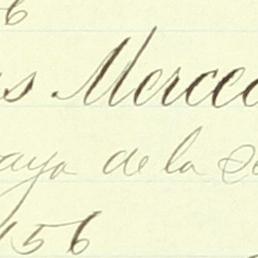 6
s Merced
aya de la
456